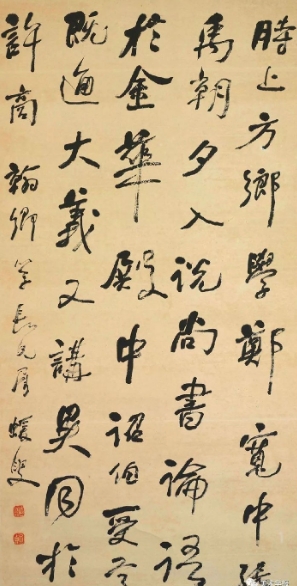 時上方鄉學鄭寬中張
禹朝夕入說尚書論語
於金華殿中詔伯受焉
既通大義又講異同於
許商 翰卿學長兄屬 蝯叟